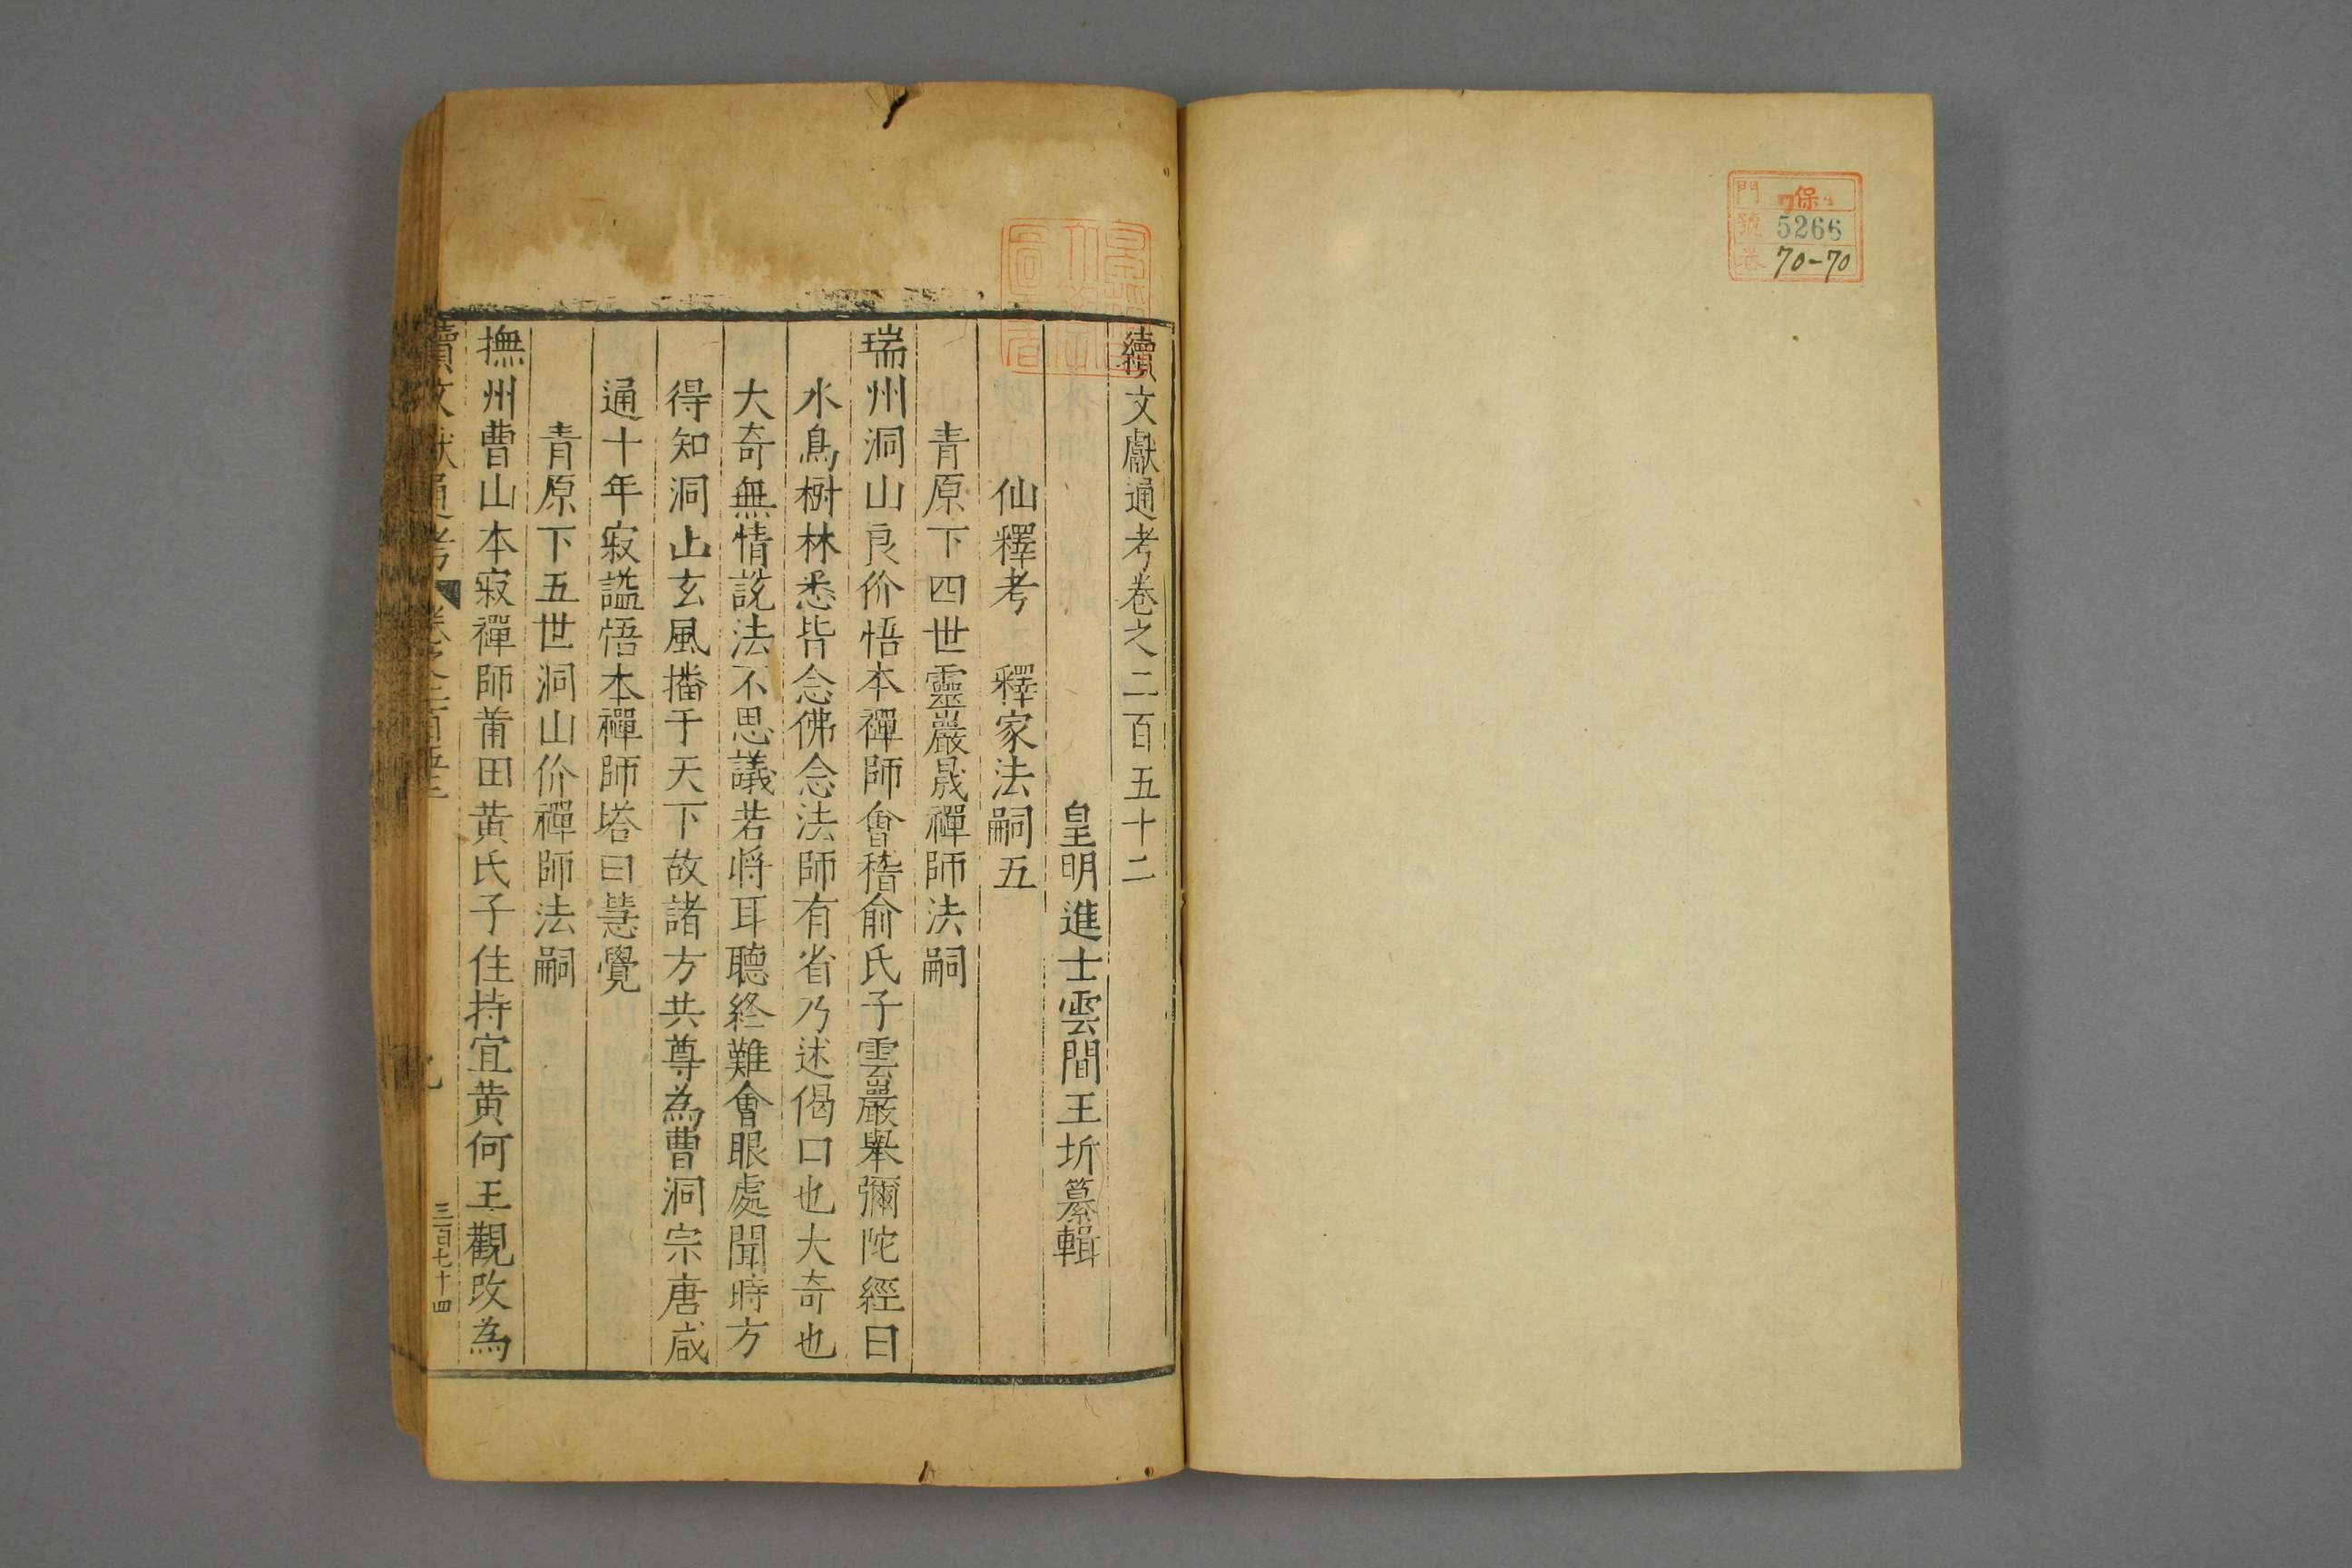 門 保 4
號 5266
巻 70-70
續文獻通考卷之二百五十二
皇明進士雲間王圻纂輯
仙釋考 釋家法嗣五
青原下四世靈巖晟禪師法嗣
瑞州洞山良价悟本禪師會稽俞氏子雲巖舉彌陀經曰
水鳥樹林悉皆念佛念法師有省乃述偈曰也大奇也
大奇無情説法不思議若將耳聽終難會眼處聞時方
得知洞上玄風播于天下故諸方共尊為曹洞宗唐咸
通十年寂謚悟本禪師塔曰慧覺
青原下五世洞山价禪師法嗣
撫州曹山本寂禪師莆田黃氏子住持宜黃何王觀改為
續文獻通考 卷之二百五十二
三百七十四